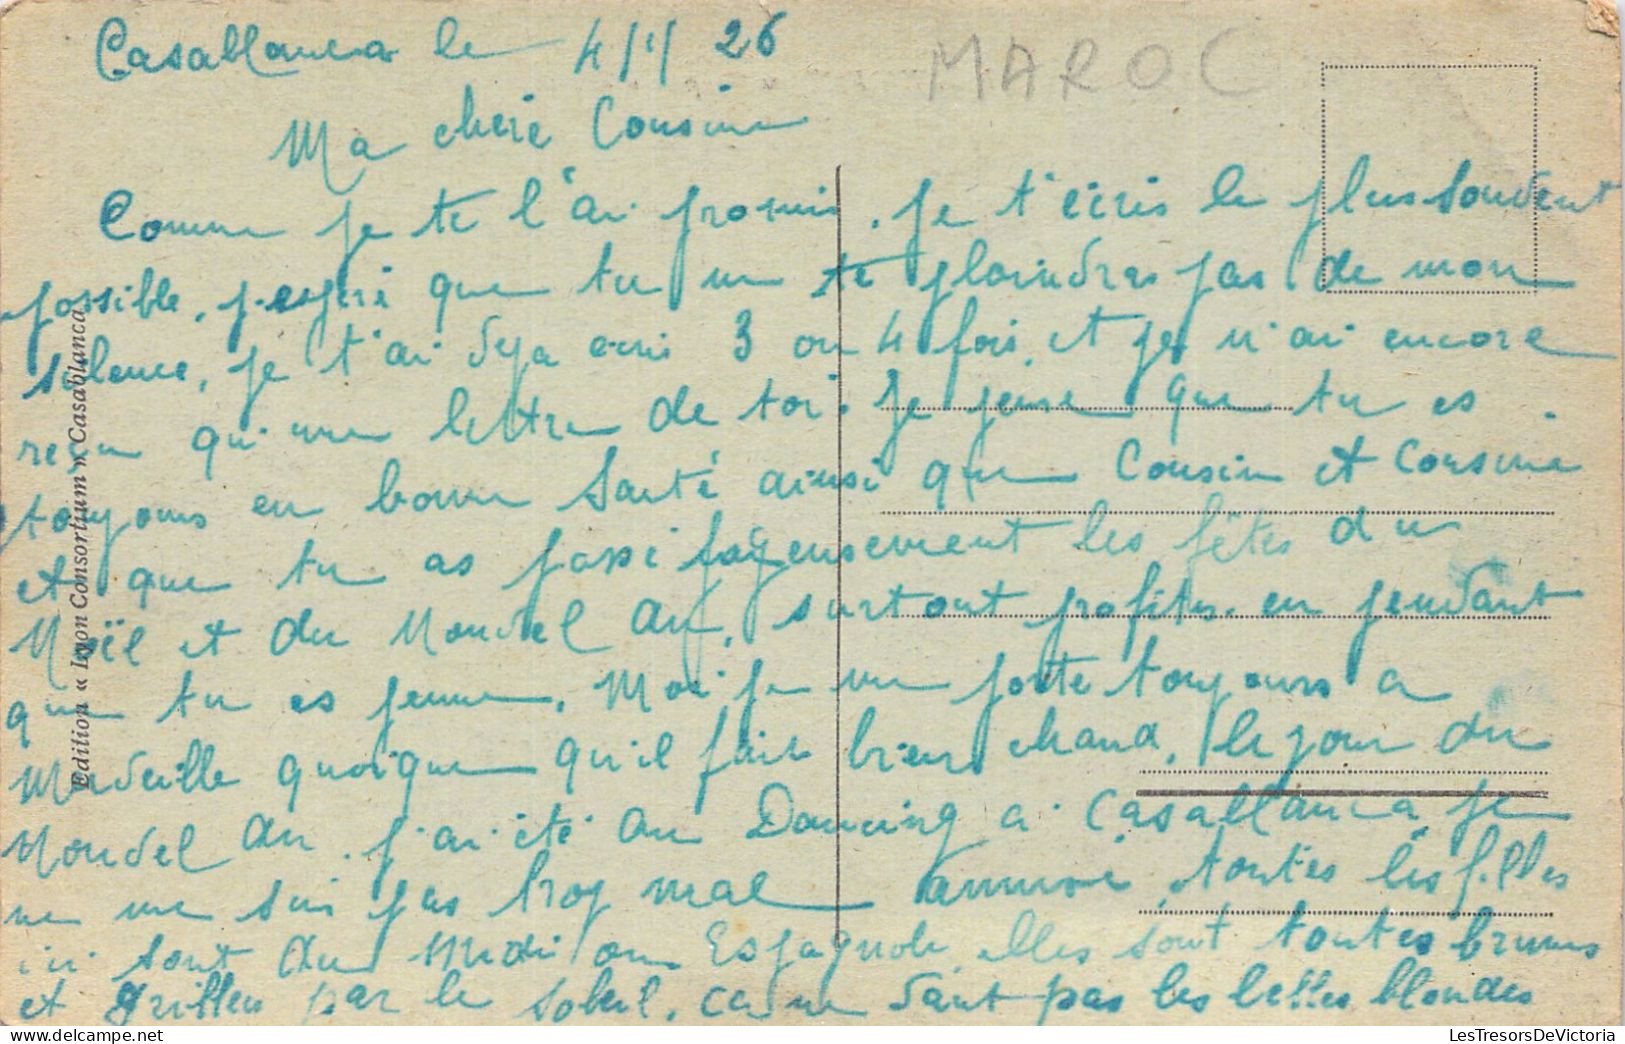 Casablanca le 4/1/26
MAROC
Ma chère Cousine
Comme je te l'ai promis. je t'écris le plus souvent
possible, j'espère que tu ne te plaindras pas de mon
silence, je t'ai deja écris 3 ou 4 fois, et je n'ai encore
reçu qu'une lettre de toi. Je pense que tu es
toujours en bonne Santé ainsi que Cousin et Cousine
et que tu as passé joyeusement les fêtes du
Noël et du Nouvel an, surtout profites. en pendant
que tu es jeune. Moi je me porte toujours a
Merveille quoique qu'il fait bien chaud, le jour du
Nouvel an j'ai été au Dancing a Casablanca je
ne me suis pas trop mal amusé, toutes les filles
ici sont du Midi ou Espagnole, elles sont toutes brunes
et grillés par le soleil, ca ne vaut pas les belles blondes
Edition « Lyon Consortium » Casablanca
LesTresorsDeVictoria.com